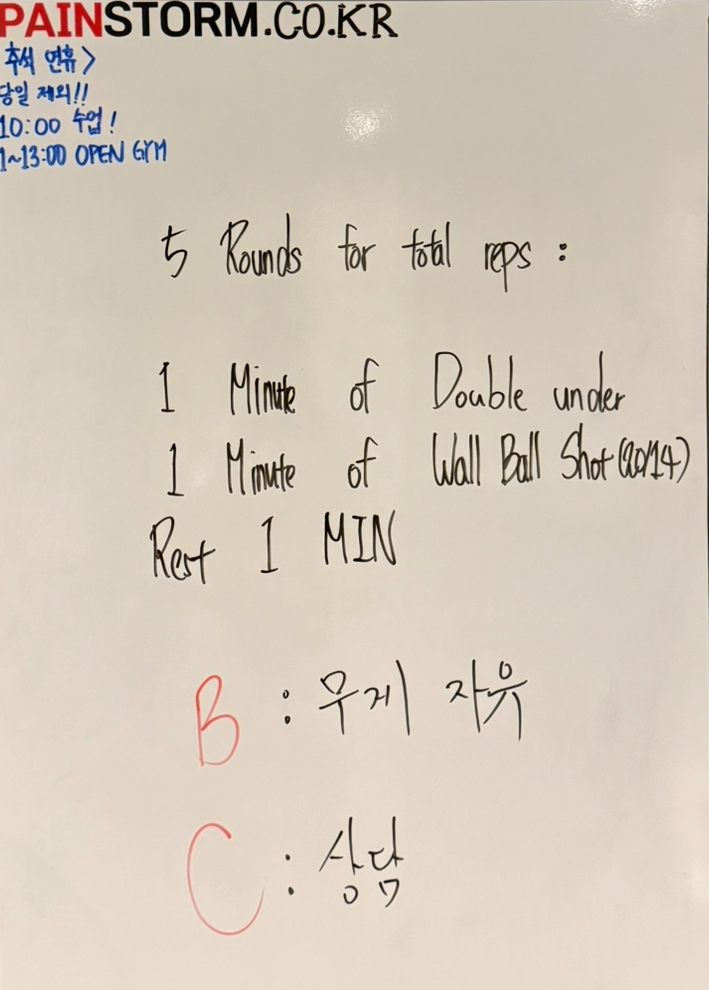 PAINSTORM.CO.KR
추석 연휴>
당일 제외!!
10:00 수업!
1~13:00 OPEN GYM
5 Rounds for total reps :
1 Minute of Double under
1 Minute of Wall Ball Shot (20/14)
Rest 1 MIN
B : 무게 자유
C : 상담